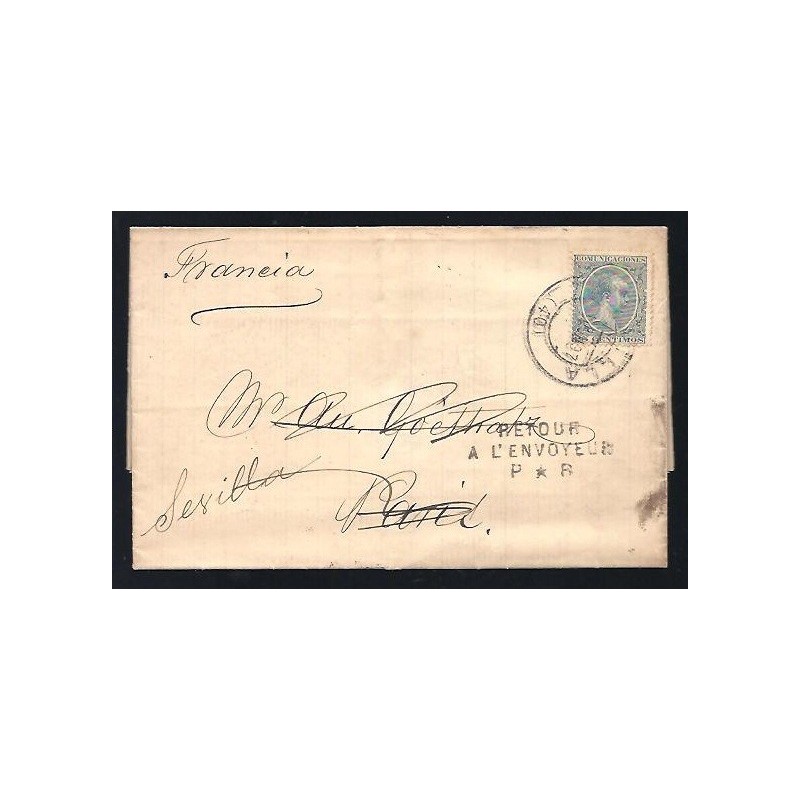 Francia
COMUNICACIONES
CENTIMOS
(40)
LLA
RETOUR
A L'ENVOYEUR
P ★ R
Sevilla
Paris.